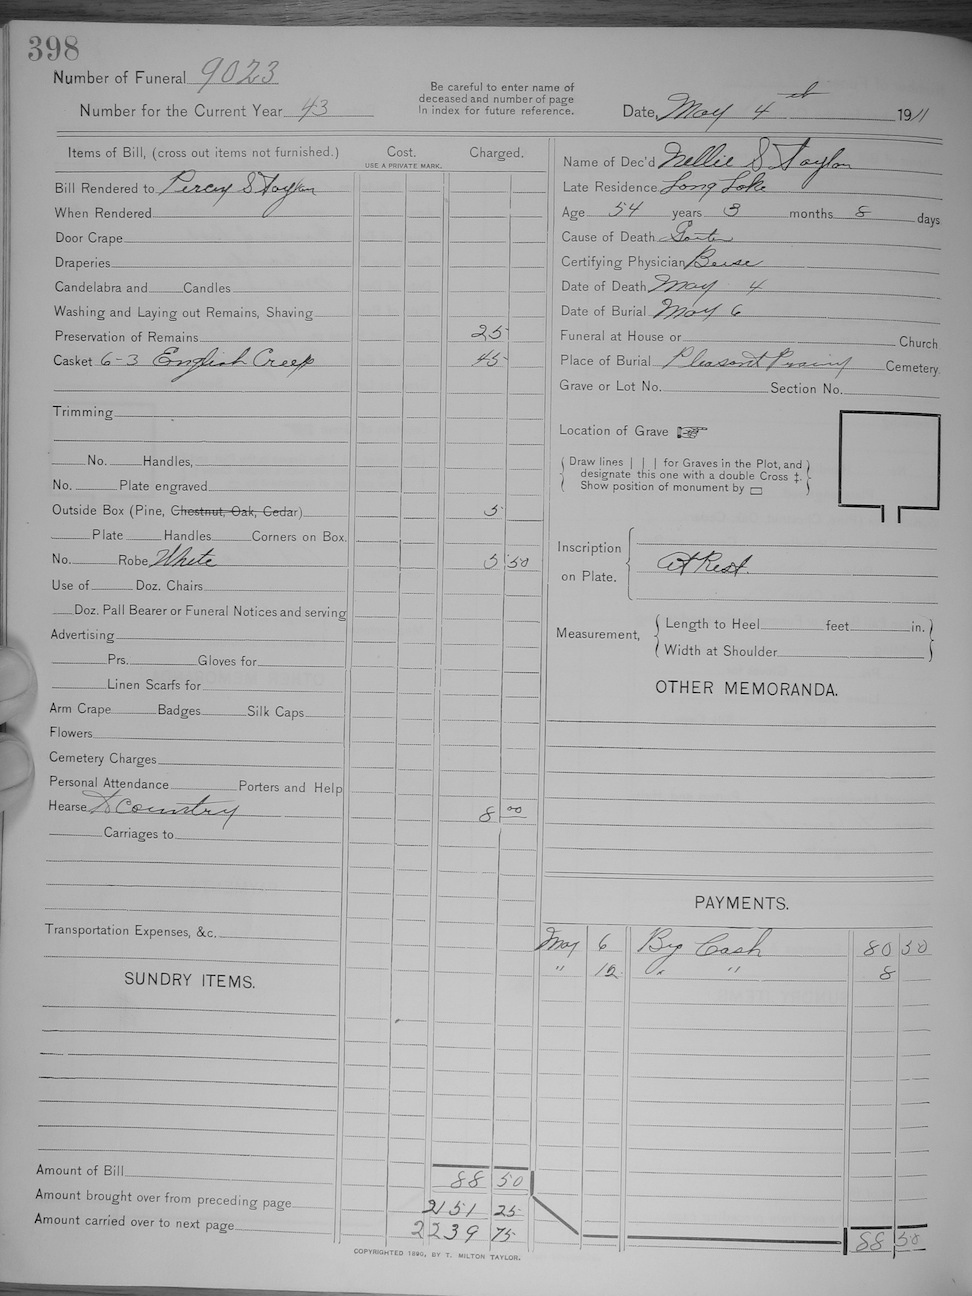 398
Number of Funeral 9023
Number for the Current Year 43
Be careful to enter name of
deceased and number of page
In index for future reference.
Date, May 4th 1911
Items of Bill, (cross out items not furnished.)
Cost.
USE A PRIVATE MARK.
Charged.
Bill Rendered to Percy S Taylor
When Rendered
Door Crape
Draperies
Candelabra and Candles
Washing and Laying out Remains, Shaving
Preservation of Remains 25
Casket 6-3 English Creep 45
Trimming
No. Handles,
No. Plate engraved
Outside Box (Pine, Chestnut, Oak, Cedar) 5
Plate Handles Corners on Box.
No. Robe White 5 50
Use of Doz. Chairs
Doz. Pall Bearer or Funeral Notices and serving
Advertising
Prs. Gloves for
Linen Scarfs for
Arm Crape Badges Silk Caps
Flowers
Cemetery Charges
Personal Attendance Porters and Help
Hearse To Country 8 00
Carriages to
Transportation Expenses, &c.
SUNDRY ITEMS.
Amount of Bill 88 50
Amount brought over from preceding page 2151 25
Amount carried over to next page 2239 75
Name of Dec'd Nellie S Taylor
Late Residence Long Lake
Age 54 years 3 months 8 days
Cause of Death
Certifying Physician
Date of Death May 4
Date of Burial May 6
Funeral at House or Church
Place of Burial Pleasant Cemetery.
Grave or Lot No. Section No.
Location of Grave
Draw lines | | | for Graves in the Plot, and
designate this one with a double Cross ‡.
Show position of monument by ▭
Inscription
on Plate.
At Rest.
Measurement,
Length to Heel feet in.
Width at Shoulder
OTHER MEMORANDA.
PAYMENTS.
May 6 By Cash 80 50
" 12 " " 8
88 50
COPYRIGHTED 1890, BY T. MILTON TAYLOR.